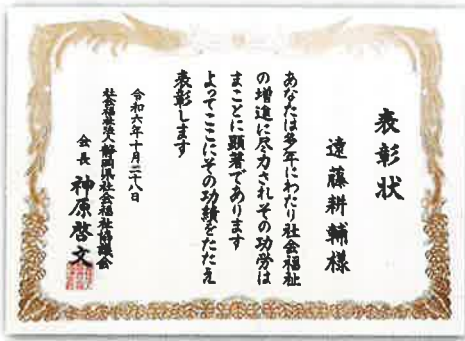 表彰状
遠藤耕輔様
あなたは多年にわたり社会福祉
の増進に尽力されその功労は
まことに顕著であります
よってここにその功績をたたえ
表彰します
令和六年十月二十八日
社会福祉法人静岡県社会福祉協議会
会長 神原啓文